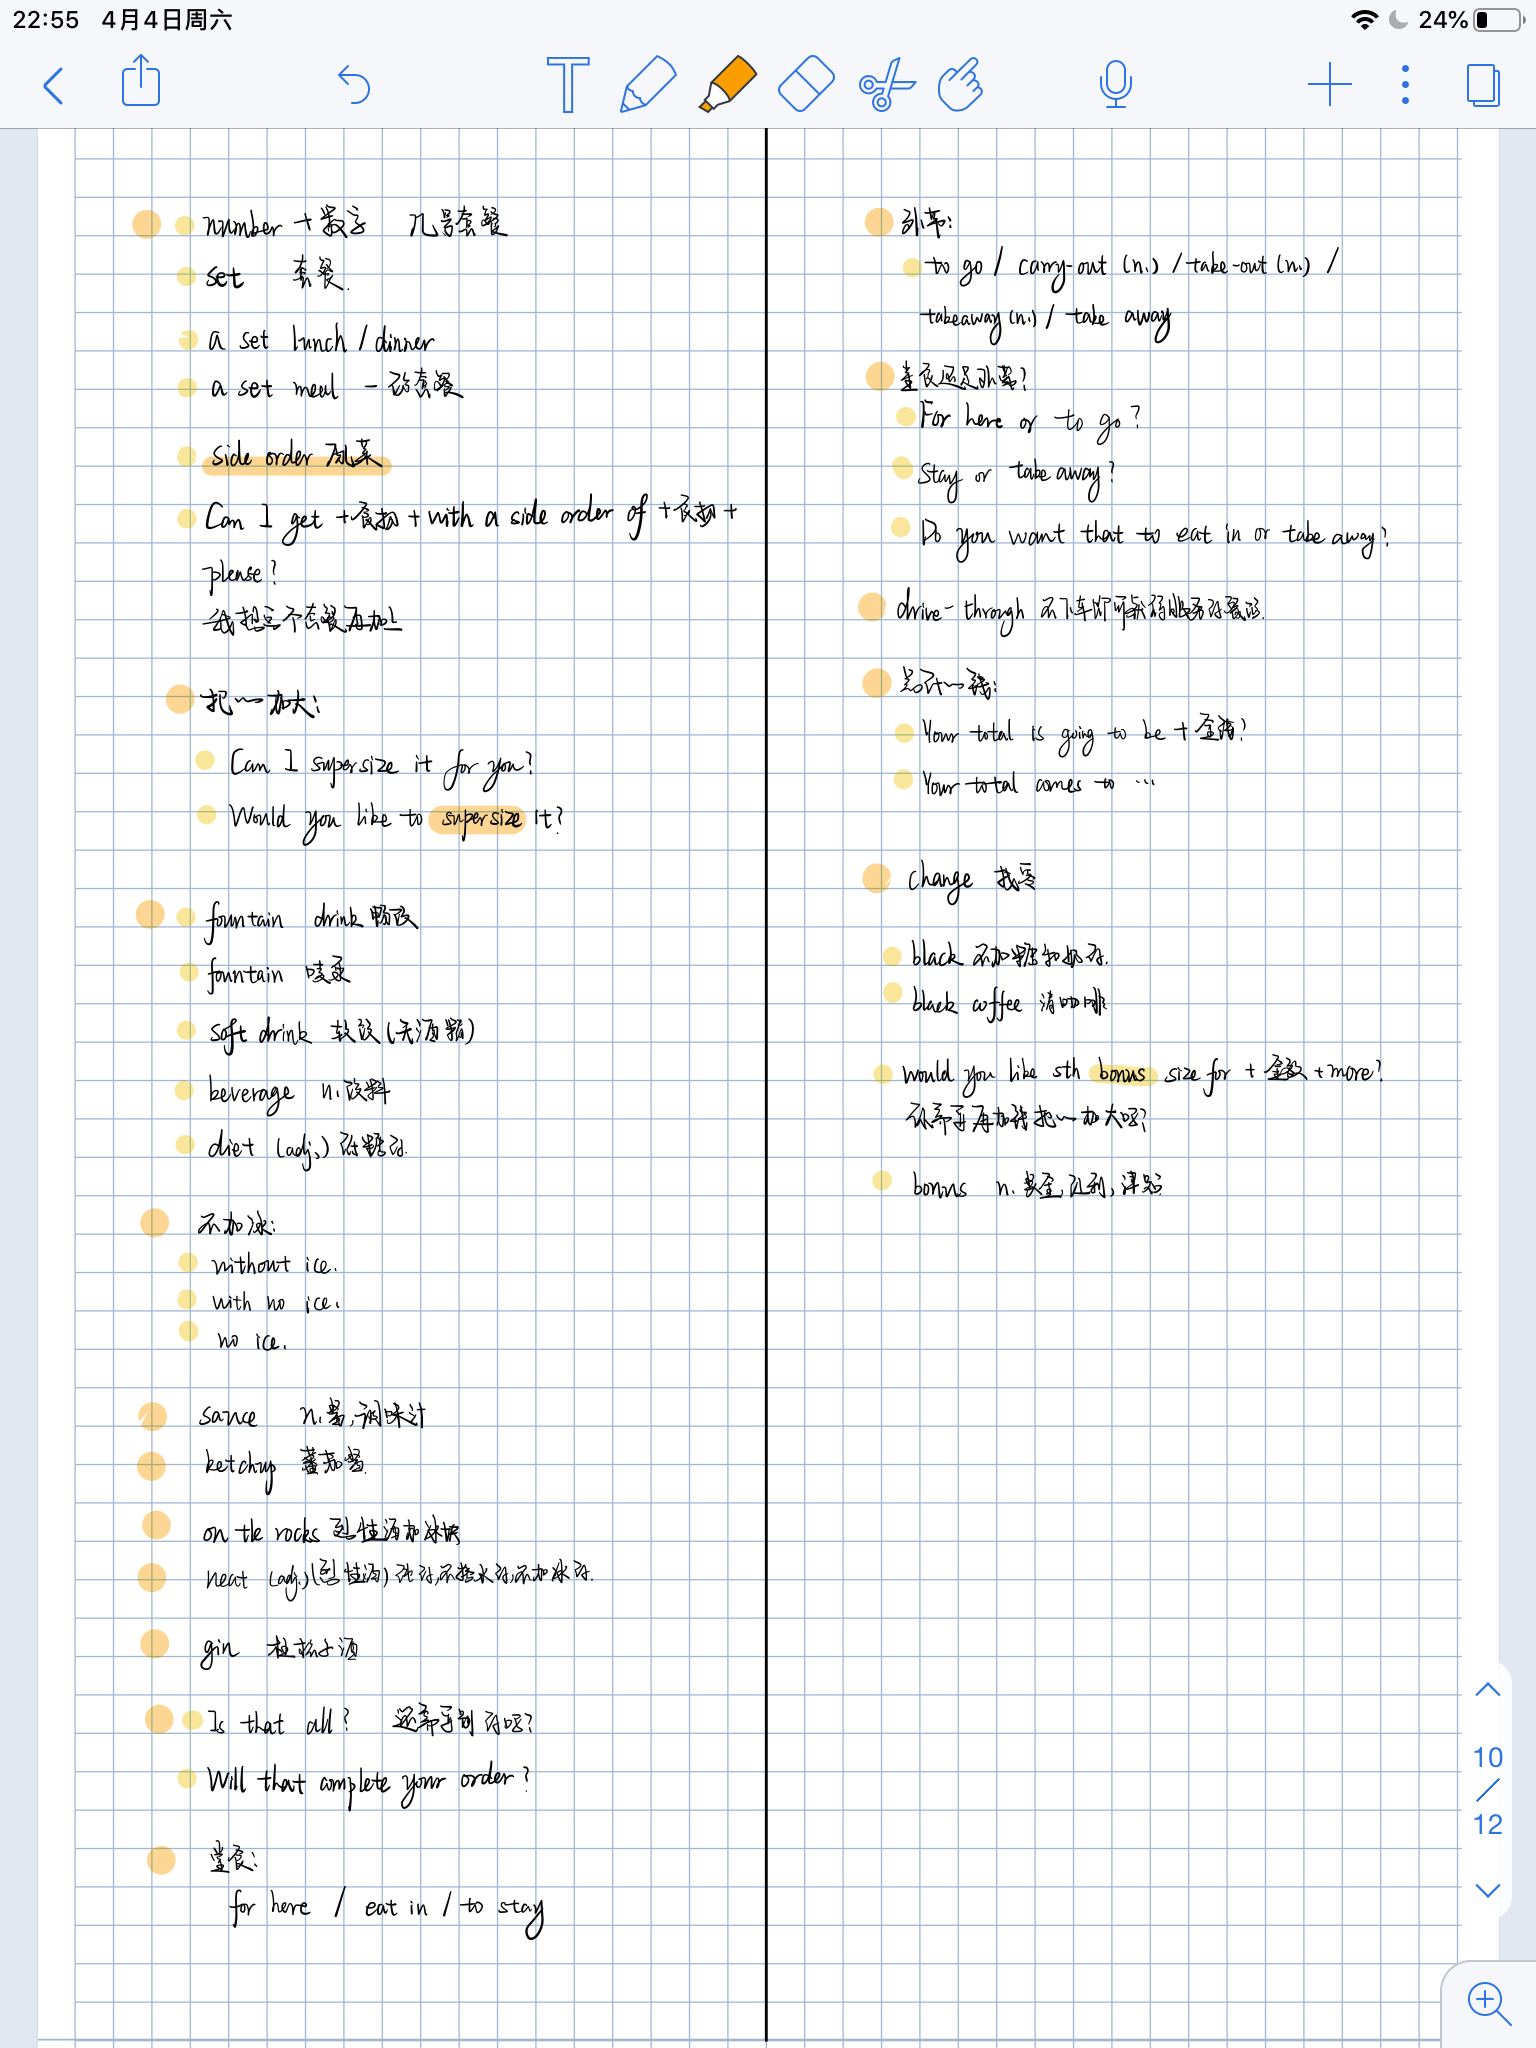 22:55 4月4日周六
24%
number + 数字 几号套餐
set 套餐.
a set lunch / dinner
a set meal 一份套餐
side order 配菜
Can I get + 食物 + with a side order of + 食物 +
please?
我想要个套餐再加上
把~~加大:
Can I supersize it for you?
Would you like to supersize it?
fountain drink 畅饮
fountain 喷泉
soft drink 软饮(无酒精)
beverage n. 饮料
diet (adj.) 低糖的.
不加冰:
without ice.
with no ice.
no ice.
sauce n. 酱,调味汁
ketchup 蕃茄酱.
on the rocks 烈性酒加冰块
neat (adj.)(烈性酒)纯的,不掺水的,不加冰的.
gin 杜松子酒
Is that all? 还需要别的吗?
Will that complete your order?
堂食:
for here / eat in / to stay
外带:
to go / carry-out (n.) / take-out (n.) /
takeaway (n.) / take away
堂食还是外带?
For here or to go?
Stay or take away?
Do you want that to eat in or take away?
drive-through 不下车即可获得服务的餐馆.
总计~~钱:
Your total is going to be + 金额?
Your total comes to ...
change 找零
black 不加糖和奶的.
black coffee 清咖啡
would you like sth bonus size for + 金额 + more?
你需要再加钱把~~加大吗?
bonus n. 奖金,红利,津贴
10
/
12